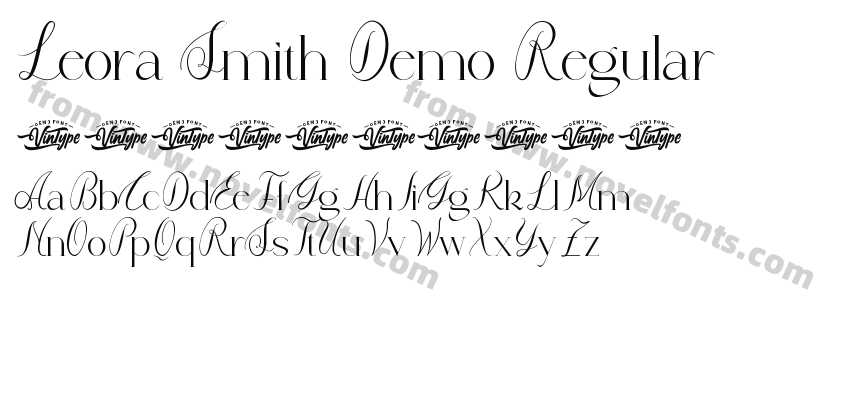 Leora Smith Demo Regular
DEMO FONT Vintype DEMO FONT Vintype DEMO FONT Vintype DEMO FONT Vintype DEMO FONT Vintype DEMO FONT Vintype DEMO FONT Vintype DEMO FONT Vintype DEMO FONT Vintype DEMO FONT Vintype
AaBbCcDdEeFfGgHhIiGgKkLlMm
NnOoPpQqRrSsTtUuVvWwXxYyZz
from www.novelfonts.com
from www.novelfonts.com